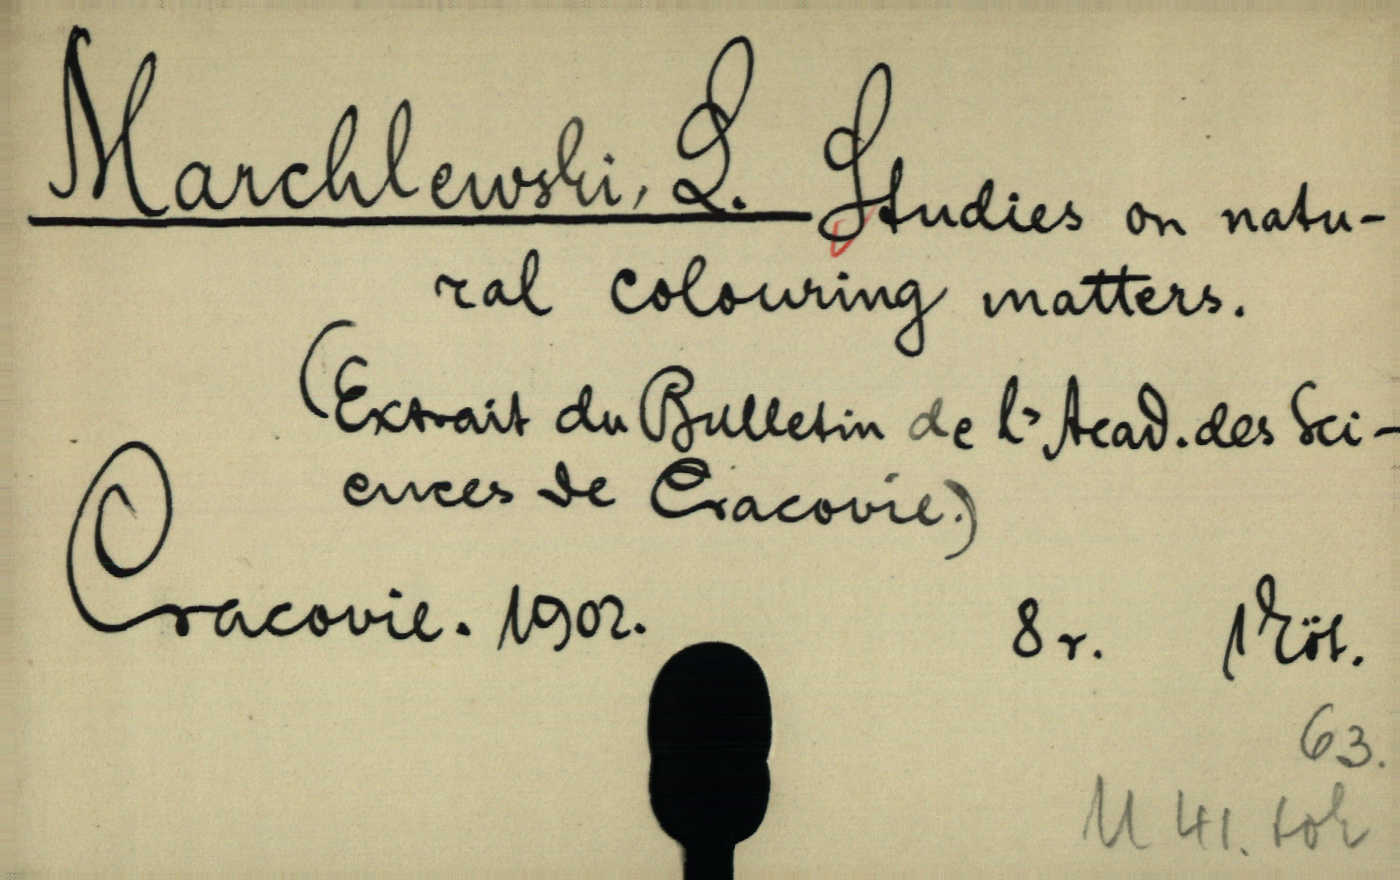 Marchlewski, L. Studies on natu-
ral colouring matters.
(Extrait du Bulletin de l'Acad. des Sci-
ences de Cracovie.)
Cracovie. 1902. 8 r. 1 Köt.
63.
M 41. tok